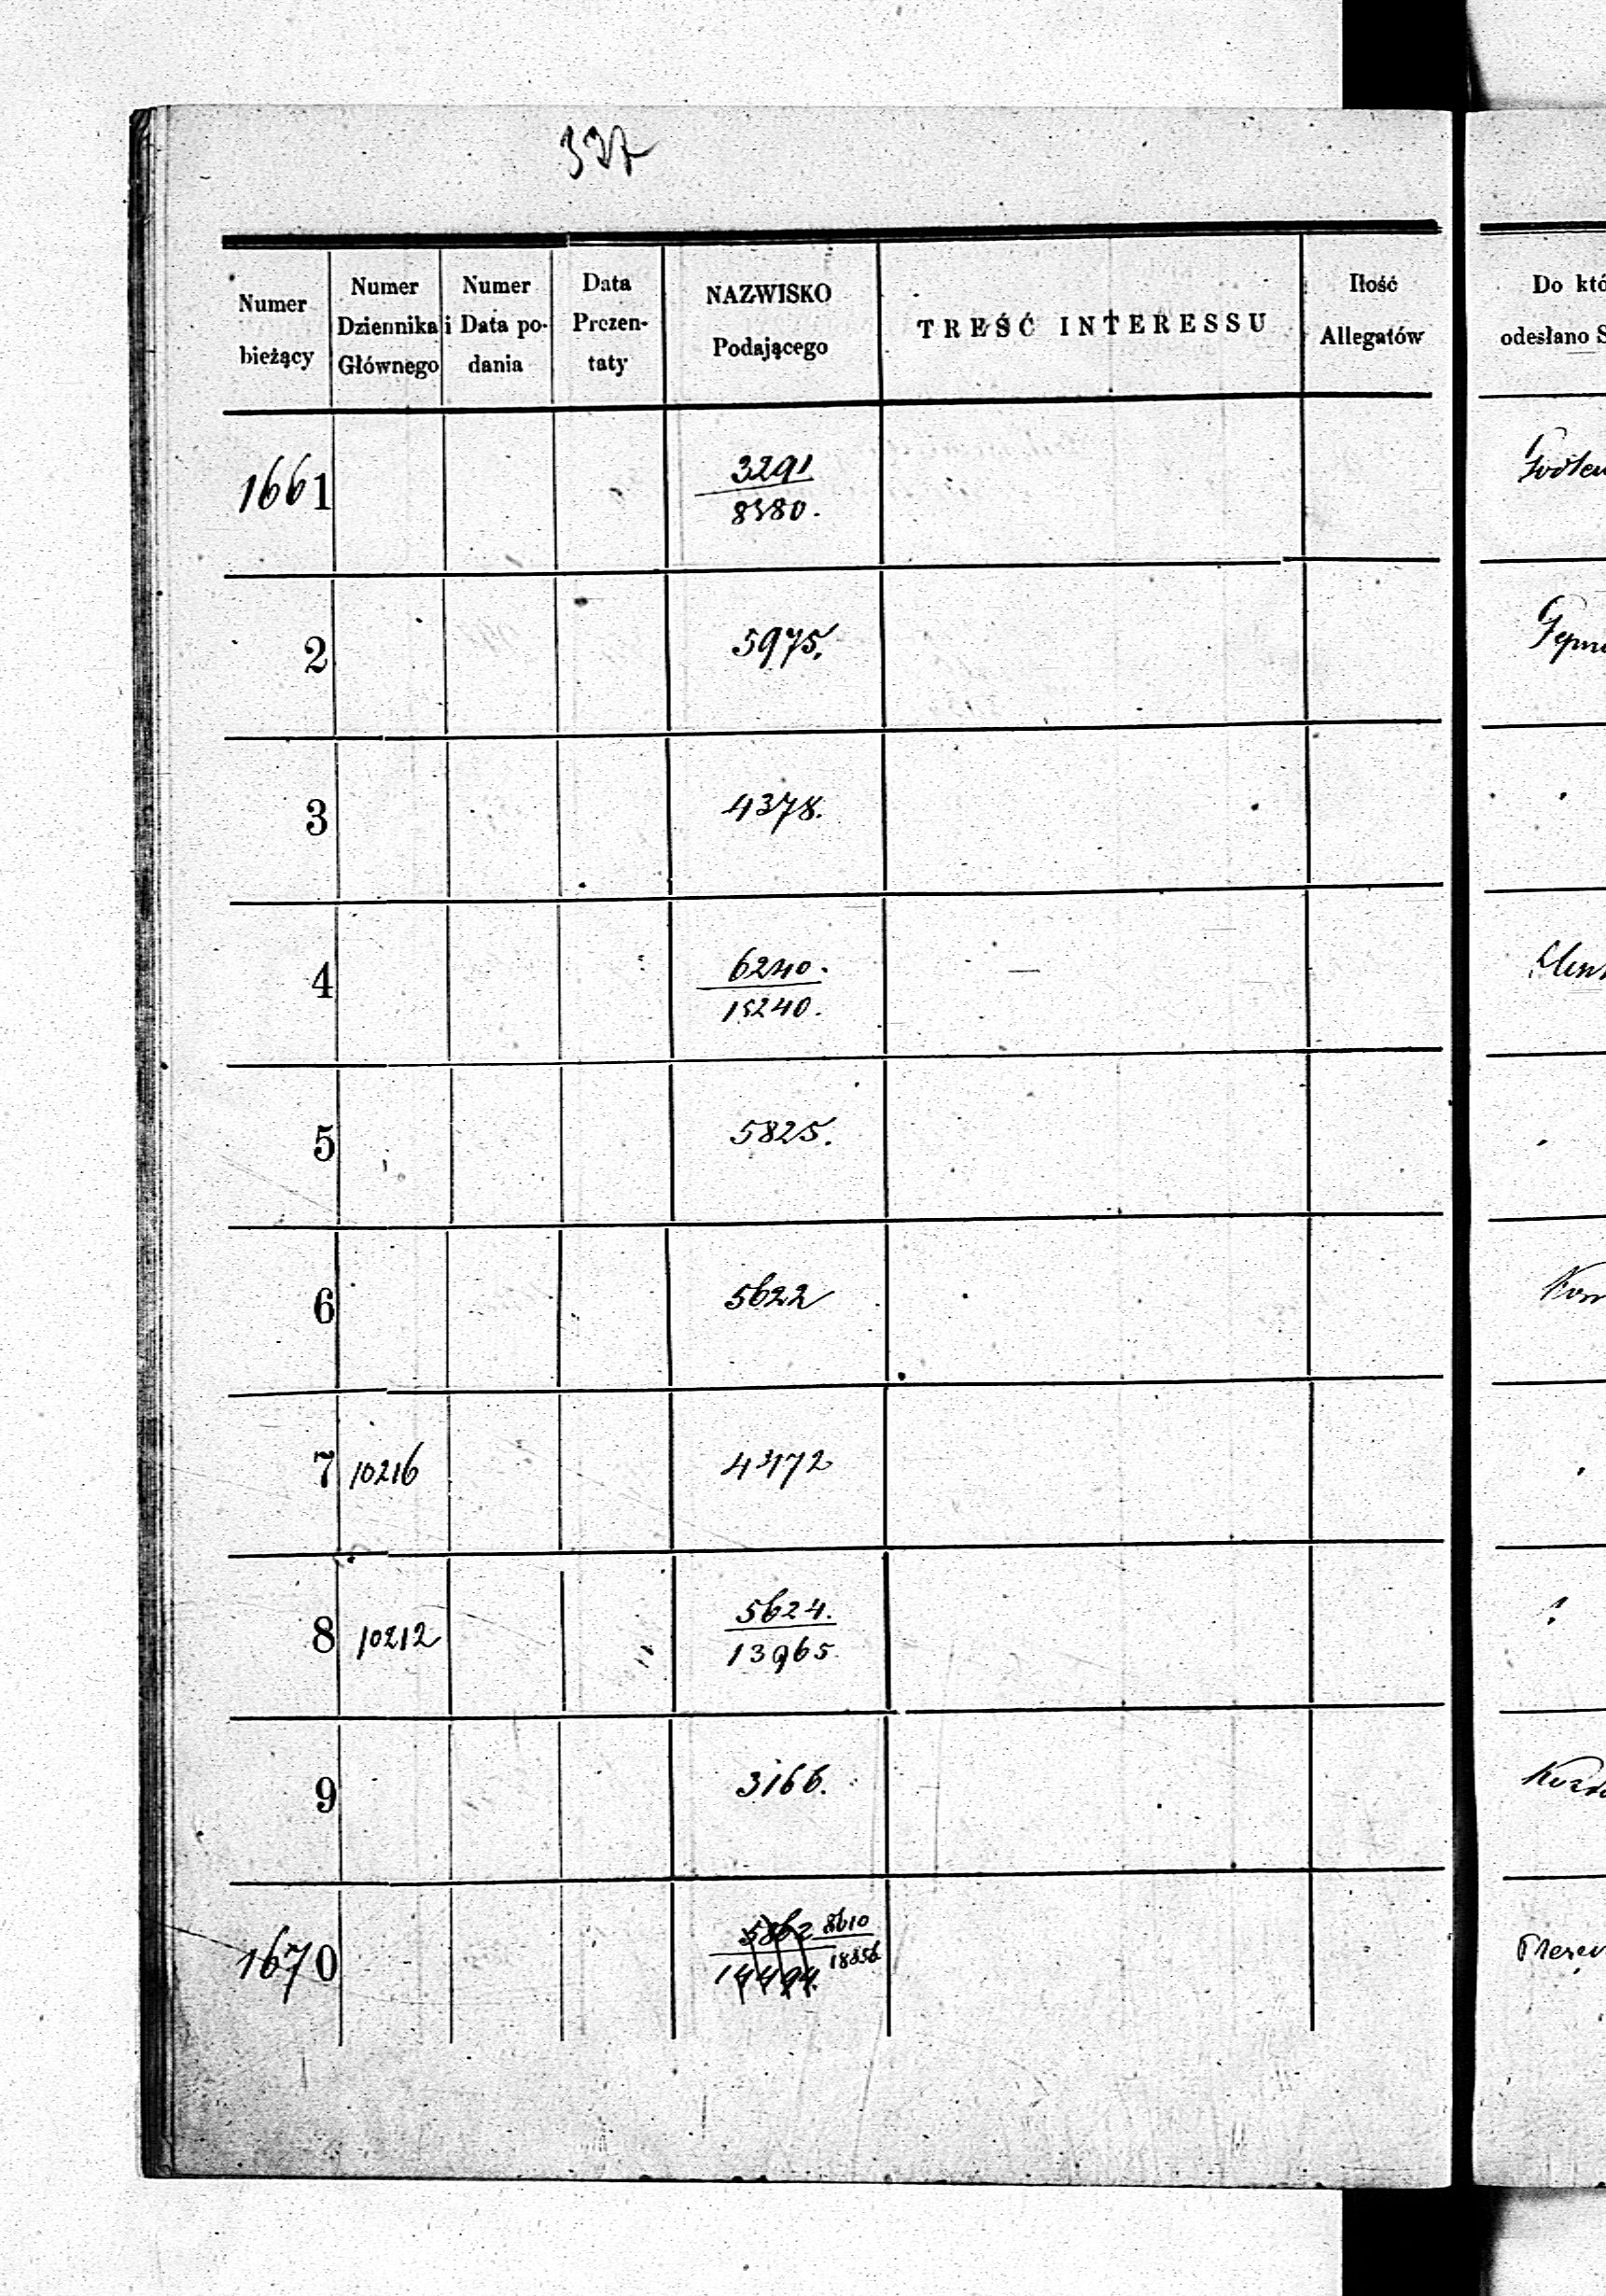 337
Numer bieżący
Numer Dziennika Głównego
Numer i Data podania
Data Prezentaty
NAZWISKO Podającego
TREŚĆ INTERESSU
Ilość Allegatów
Do któ
odesłano S
1661 3291
8380.
2 5975.
3 4378.
4 6240.
15240.
5 5825.
6 5622
7 10216 4372
8 10212 5624.
13965.
9 3166.
1670 5862 8610
14494. 18356